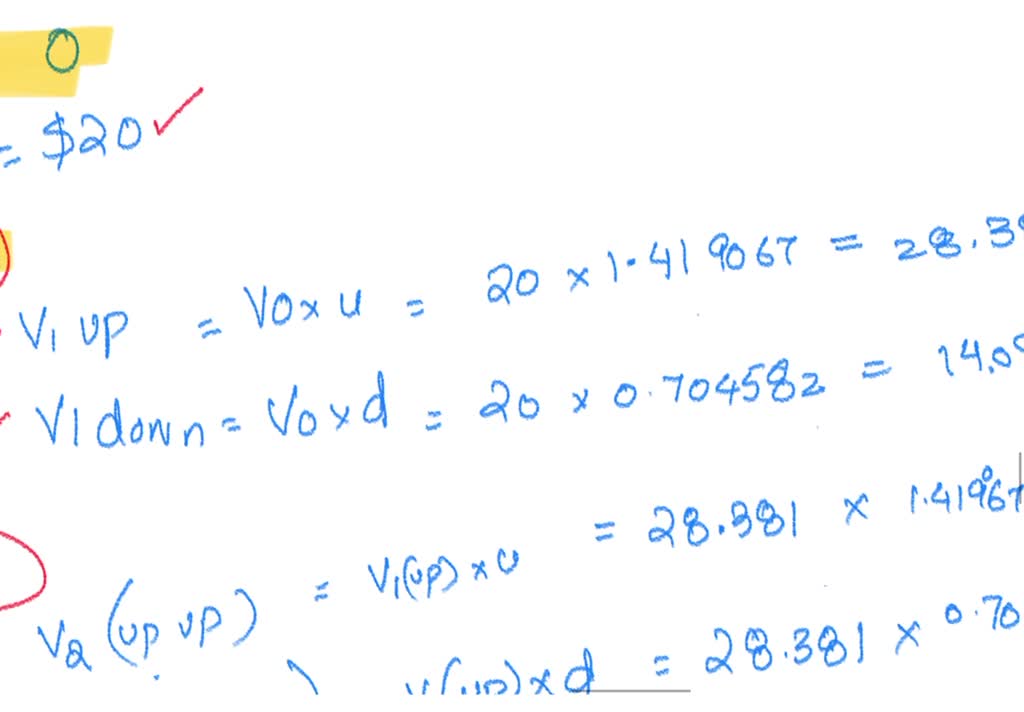 0
= $20
V1 up = V0 x u = 20 x 1.419067 = 28.3
V1 down = V0 x d = 20 x 0.704582 = 14.0
V2 (up up) = V1(up) x u = 28.381 x 1.419067
x d = 28.381 x 0.70